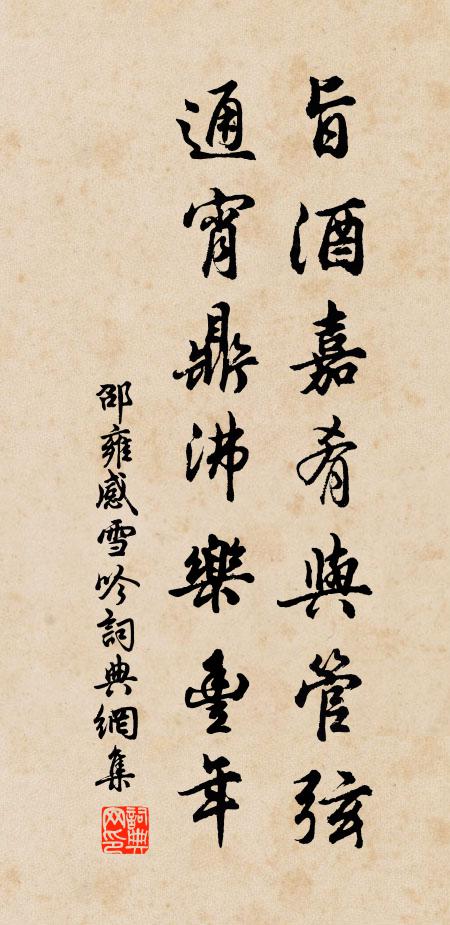 旨酒嘉肴與管弦
通宵鼎沸樂豊年
邵雍感雪吟詞典網集
詞典网印